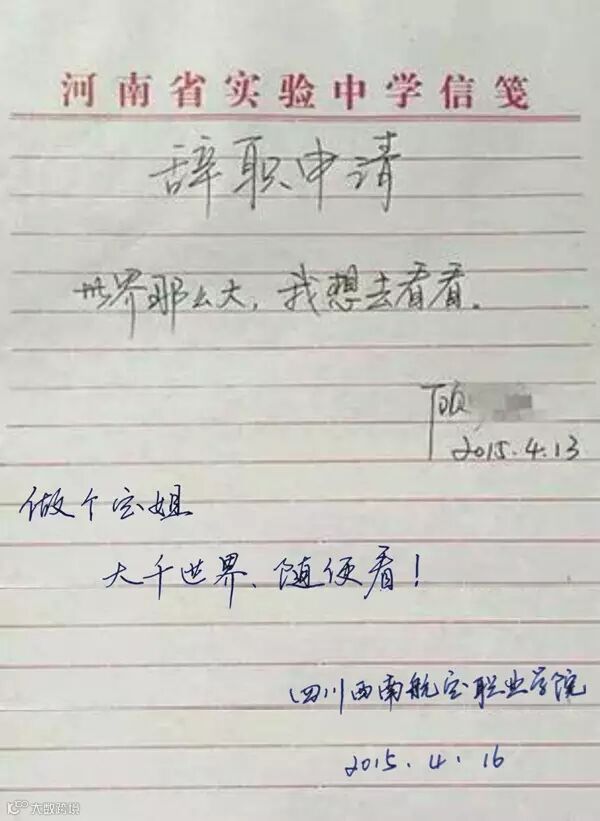 河南省实验中学信笺
辞职申请
世界那么大，我想去看看。
顾
2015.4.13
做个空姐
大千世界、随便看！
四川西南航空职业学院
2015.4.16
大数跨境